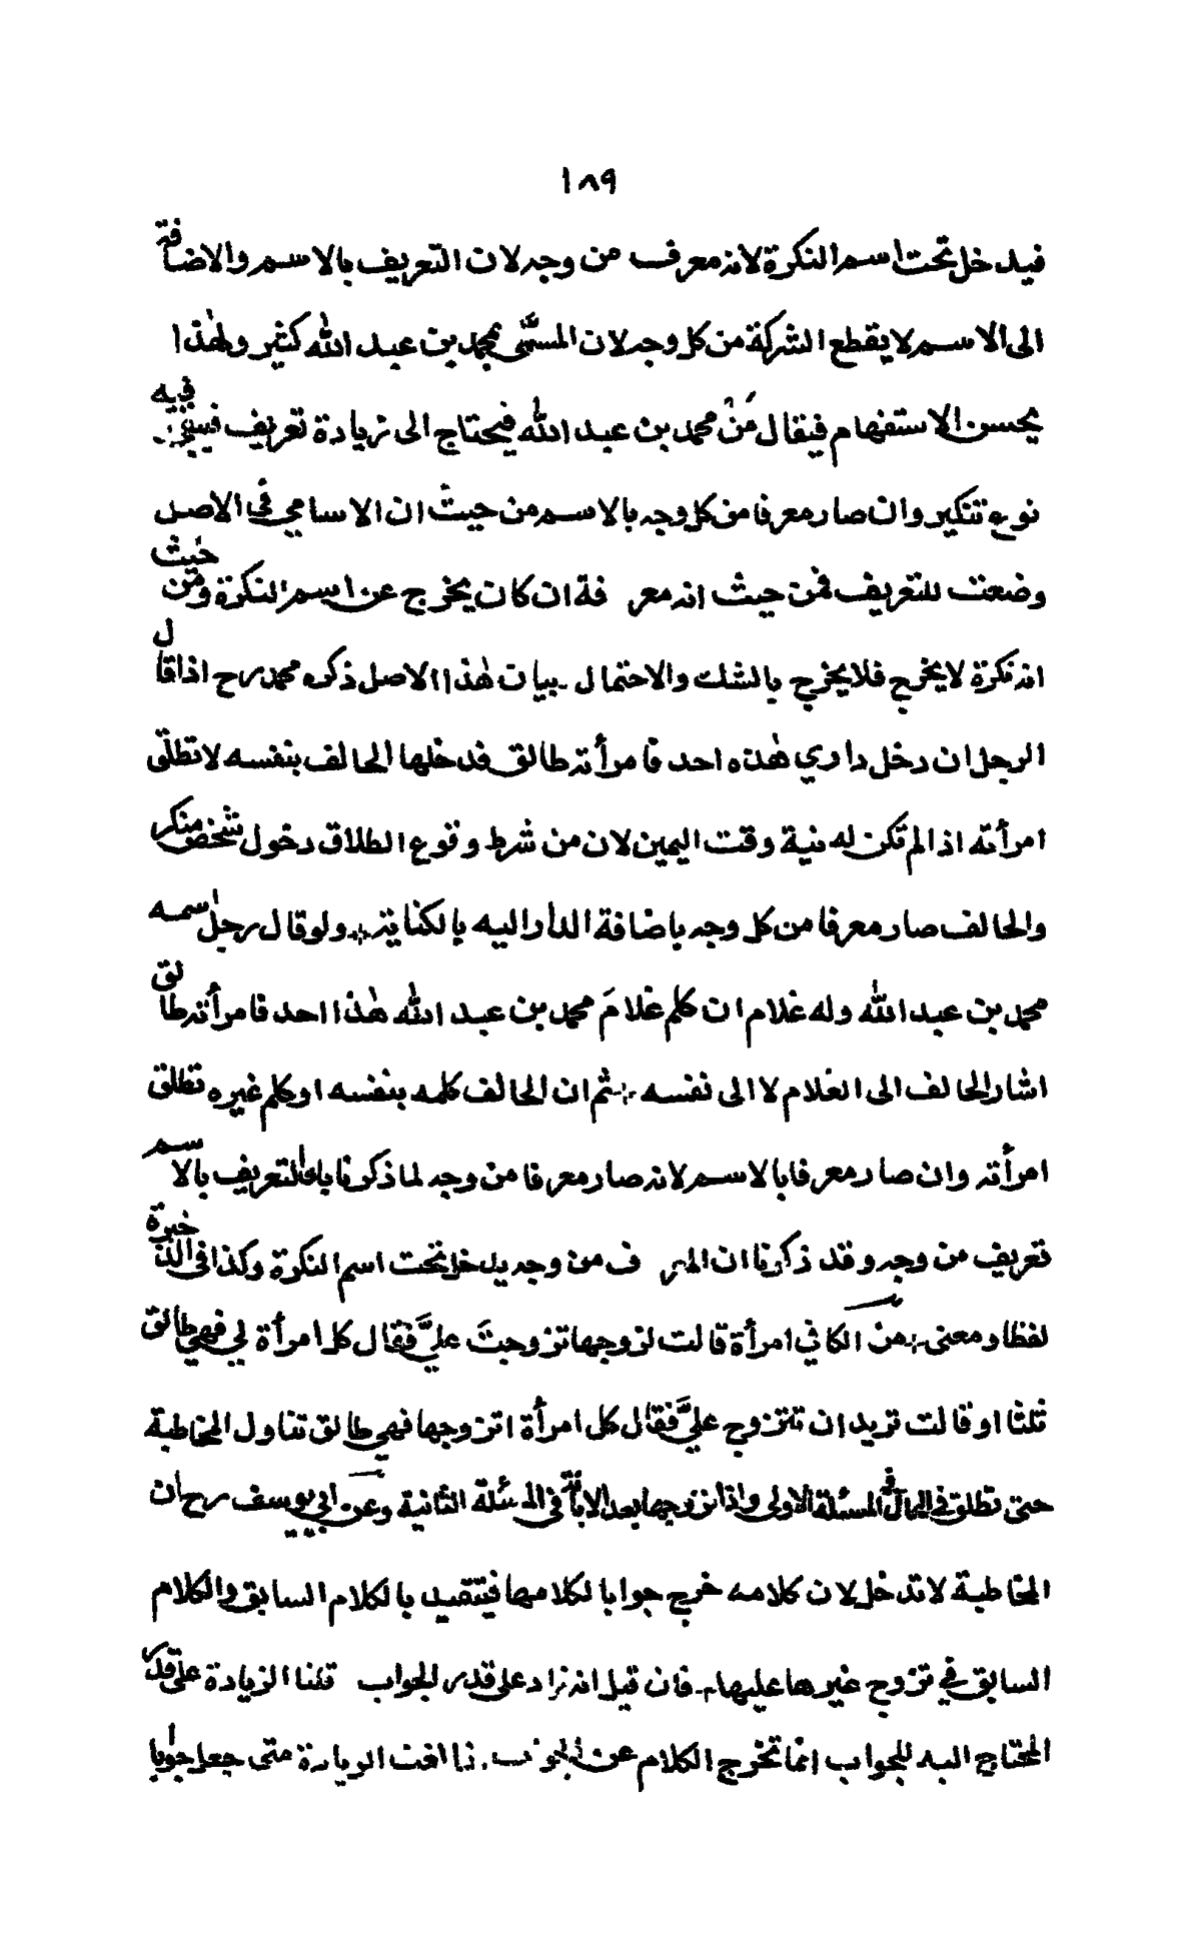 ١٨٩
فيدخل تحت اسم النكرة لانه معرف من وجه لان التعريف بالاسم والاضافة
الى الاسم لا يقطع الشركة من كل وجه لان المسمّى بمحمد بن عبد الله كثير ولهذا
يحسن الاستفهام فيقال مَنْ محمد بن عبد الله فيحتاج الى زيادة تعريف فيبقى فيه
نوع تنكير وان صار معرفا من كل وجه بالاسم من حيث ان الاسامي في الاصل
وضعت للتعريف فمن حيث انه معرفة ان كان يخرج عن اسم النكرة ومن حيث
انه نكرة لا يخرج فلا يخرج بالشك والاحتمال بيان هذا الاصل ذكره محمد رح اذا قال
الرجل ان دخل داري هذه احد فامرأته طالق فدخلها الحالف بنفسه لا تطلق
امرأته اذا لم تكن له نية وقت اليمين لان من شرط وقوع الطلاق دخول شخص منكر
والحالف صار معرفا من كل وجه باضافة الدار اليه بالكناية ولو قال رجل اسمه
محمد بن عبد الله وله غلام ان كلم غلامَ محمد بن عبد الله هذا احد فامرأته طالق
اشار الحالف الى الغلام لا الى نفسه ثم ان الحالف كلمه بنفسه او كلم غيره تطلق
امرأته وان صار معرفا بالاسم لانه صار معرفا من وجه لما ذكرنا بان التعريف بالاسم
تعريف من وجه وقد ذكرنا ان المعرف من وجه يدخل تحت اسم النكرة وكذا في الذخيرة
لفظا ومعنى من الكافي امرأة قالت لزوجها تزوجتَ عليَّ فقال كل امرأة لي فهي طالق
ثلثا او قالت تريد ان تتزوج عليَّ فقال كل امرأة اتزوجها فهي طالق تناول المخاطبة
حتى تطلق في الحال في المسئلة الاولى واذا تزوجها بعد الابانة في المسئلة الثانية وعن ابي يوسف رح ان
المخاطبة لا تدخل لان كلامه خرج جوابا لكلامها فيتقيد بالكلام السابق والكلام
السابق في تزوج غيرها عليها فان قيل انه زاد على قدر الجواب قلنا الزيادة على قدر
المحتاج اليه للجواب انما تخرج الكلام عن الجواب اذا لغت الزيادة متى جعل جوابا